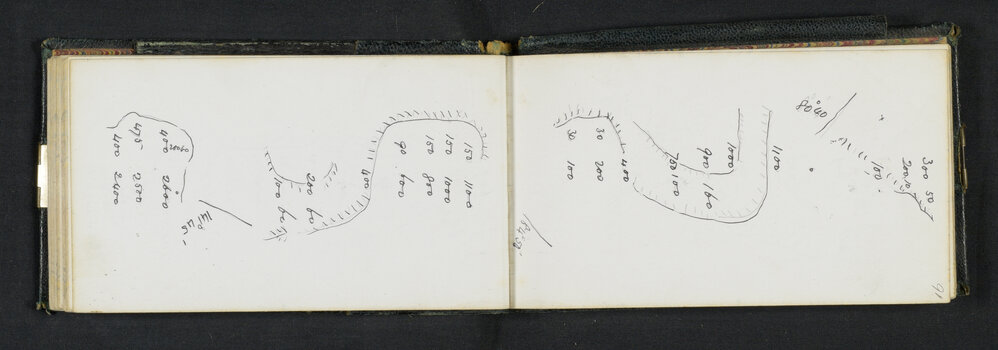 91
300 50
200
100
80°40
1100
1000
900 160
700 100
400
30 200
30 100
150 1100
150 1000
150 800
90 600
400
200 60
100 60
400 2600
475 2500
400 2400